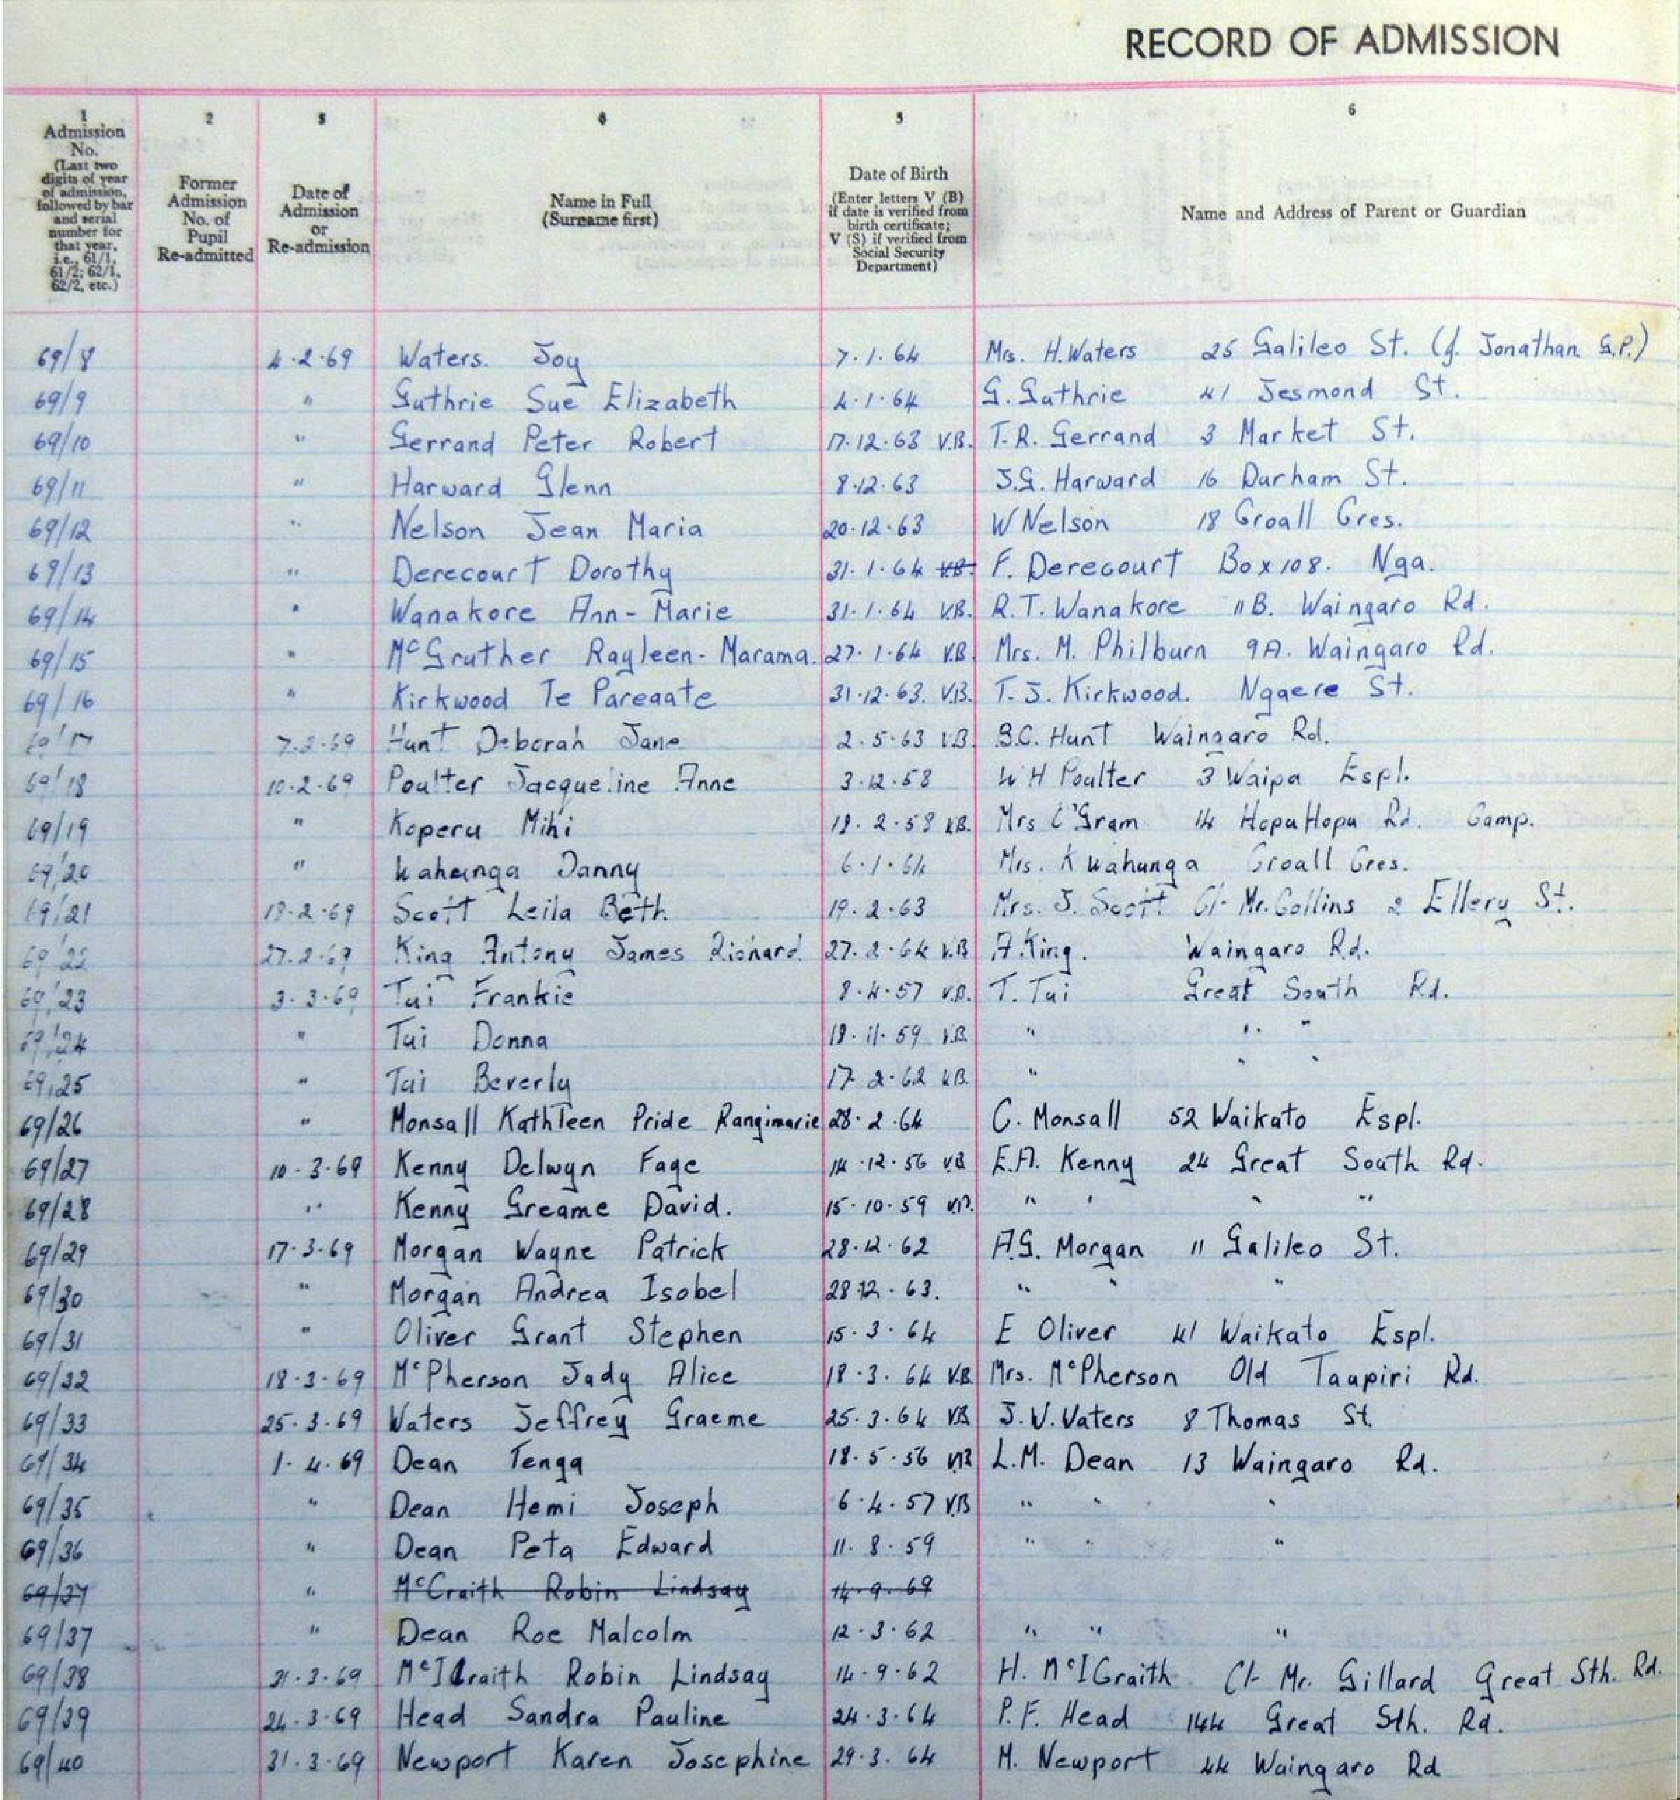 RECORD OF ADMISSION
1 2 3 4 5 6
Admission No. (Last two digits of year of admission, followed by bar and serial number for that year, i.e., 61/1, 61/2; 62/1, 62/2, etc.)
Former Admission No. of Pupil Re-admitted
Date of Admission or Re-admission
Name in Full (Surname first)
Date of Birth (Enter letters V (B) if date is verified from birth certificate; V (S) if verified from Social Security Department)
Name and Address of Parent or Guardian
69/8 4.2.69 Waters. Joy 7.1.64 Mrs. H. Waters 25 Galileo St. (f. Jonathan G.P.)
69/9 " Guthrie Sue Elizabeth 4.1.64 G. Guthrie 41 Jesmond St.
69/10 " Gerrand Peter Robert 17.12.63 V.B. T.R. Gerrand 3 Market St.
69/11 " Harward Glenn 8.12.63 J.G. Harward 16 Durham St.
69/12 " Nelson Jean Maria 20.12.63 W Nelson 18 Croall Cres.
69/13 " Derecourt Dorothy 31.1.64 V.B. F. Derecourt Box 108. Nga.
69/14 " Wanakore Ann-Marie 31.1.64 V.B. R.T. Wanakore 11B. Waingaro Rd.
69/15 " McGruther Rayleen-Marama. 27.1.64 V.B. Mrs. M. Philburn 9A. Waingaro Rd.
69/16 " Kirkwood Te Pareaate 31.12.63. V.B. T.J. Kirkwood. Ngaere St.
69/17 7.2.69 Hunt Deborah Jane 2.5.63 V.B. B.C. Hunt Waingaro Rd.
69/18 10.2.69 Poulter Jacqueline Anne 3.12.58 W H Poulter 3 Waipa Espl.
69/19 " Koperu Mihi 19.2.58 V.B. Mrs O'Gram 14 HopuHopu Rd. Camp.
69/20 " Wahanga Danny 6.1.64 Mrs. K Wahunga Croall Cres.
69/21 19.2.69 Scott Leila Beth 19.2.63 Mrs. J. Scott C/- Mr. Collins 2 Ellery St.
69/22 27.2.69 King Antony James Richard 27.2.64 V.B A. King. Waingaro Rd.
69/23 3.3.69 Tui Frankie 8.4.57 V.B. T. Tui Great South Rd.
69/24 " Tui Donna 18.11.59 V.B. " " "
69/25 " Tui Beverly 17.2.62 V.B. " " "
69/26 " Monsall Kathleen Pride Rangimarie 28.2.64 C. Monsall 52 Waikato Espl.
69/27 10.3.69 Kenny Delwyn Faye 14.12.56 V.B E.A. Kenny 24 Great South Rd.
69/28 " Kenny Greame David. 15.10.59 V.B. " " " "
69/29 17.3.69 Morgan Wayne Patrick 28.12.62 A.G. Morgan 11 Galileo St.
69/30 " Morgan Andrea Isobel 28.12.63. " " "
69/31 " Oliver Grant Stephen 15.3.64 E Oliver 41 Waikato Espl.
69/32 18.3.69 McPherson Judy Alice 18.3.64 V.B. Mrs. McPherson Old Taupiri Rd.
69/33 25.3.69 Waters Jeffrey Graeme 25.3.64 V.B J.V. Waters 8 Thomas St.
69/34 1.4.69 Dean Tenga 18.5.56 V.B L.M. Dean 13 Waingaro Rd.
69/35 " Dean Hemi Joseph 6.4.57 V.B " " "
69/36 " Dean Peta Edward 11.8.59 " " "
69/37 " McCraith Robin Lindsay 14.9.69
69/37 " Dean Roe Malcolm 12.3.62 " " "
69/38 31.3.69 McIlraith Robin Lindsay 14.9.62 H. McIGraith. C/- Mr. Gillard Great Sth. Rd.
69/39 24.3.69 Head Sandra Pauline 24.3.64 P.F. Head 144 Great Sth. Rd.
69/40 31.3.69 Newport Karen Josephine 29.3.64 M. Newport 44 Waingaro Rd